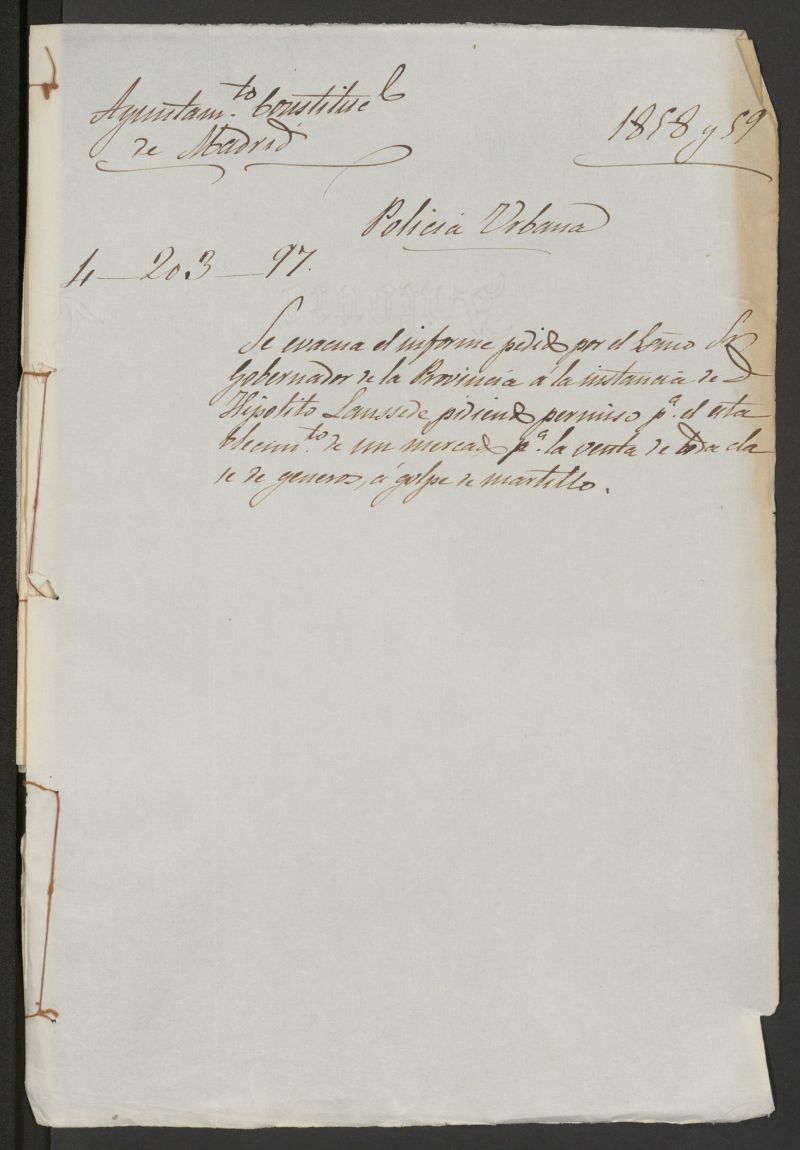 Ayuntam.to Constituc.l
de Madrid
1858 y 59
Policia Urbana
4—203—97.
Se evacua el informe pedido por el Exmo Sr
Gobernador de la Provincia á la instancia de D
Hipolito Laussede pidiendo permiso p.a el esta
blecim.to de un mercado p.a la venta de toda cla
se de generos, á golpe de martillo.